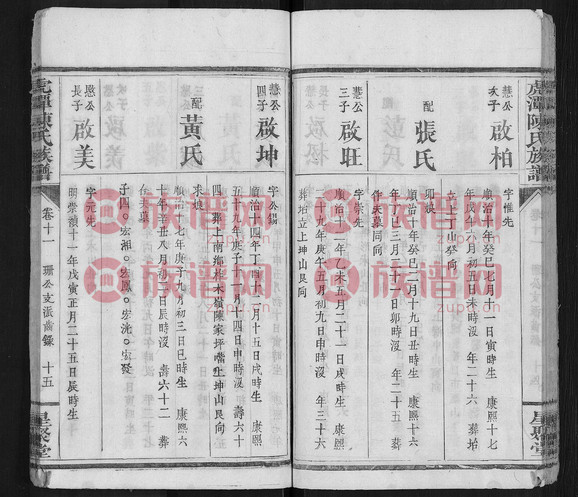 虎潭陳氏族譜
慧公次子
啟柏
字惟先
順治十年癸巳七月十一日寅時生 康熙十七
年戊午六月初五日未時沒 年二十六 葬
立上丁山癸向
配
張氏
順治十年癸巳二月十九日丑時生 康熙
年丁巳三月二十二日卯時沒 年二十五 葬
夫墓同向
慧公三子
啟旺
字崇先
順治十二年乙未五月二十一日戌時生 康熙
十九年庚午五月初九日午時沒 年三十六
葬 立上坤山艮向
慧公四子
啟坤
字公錫
順治十四年丁酉十二月十五日戌時生 康熙
五十九年庚子十一月十四日申時沒 壽六十
四 葬上南鄉 木嶺陳家坪嘴上坤山艮向
配
黃氏
順治十七年庚子九月初三日巳時生 康熙六
十年辛丑八月初二日辰時沒 壽六十二 葬
夫墓
子四 宏湘 宏鳳 宏
愍公長子
啟美
字元先
明崇禎十一年戊寅正月二十五日辰時生
虎潭陳氏族譜
卷十一
珊公支派齒錄
十五
星聚堂
星聚堂
族譜网
zupu.cn